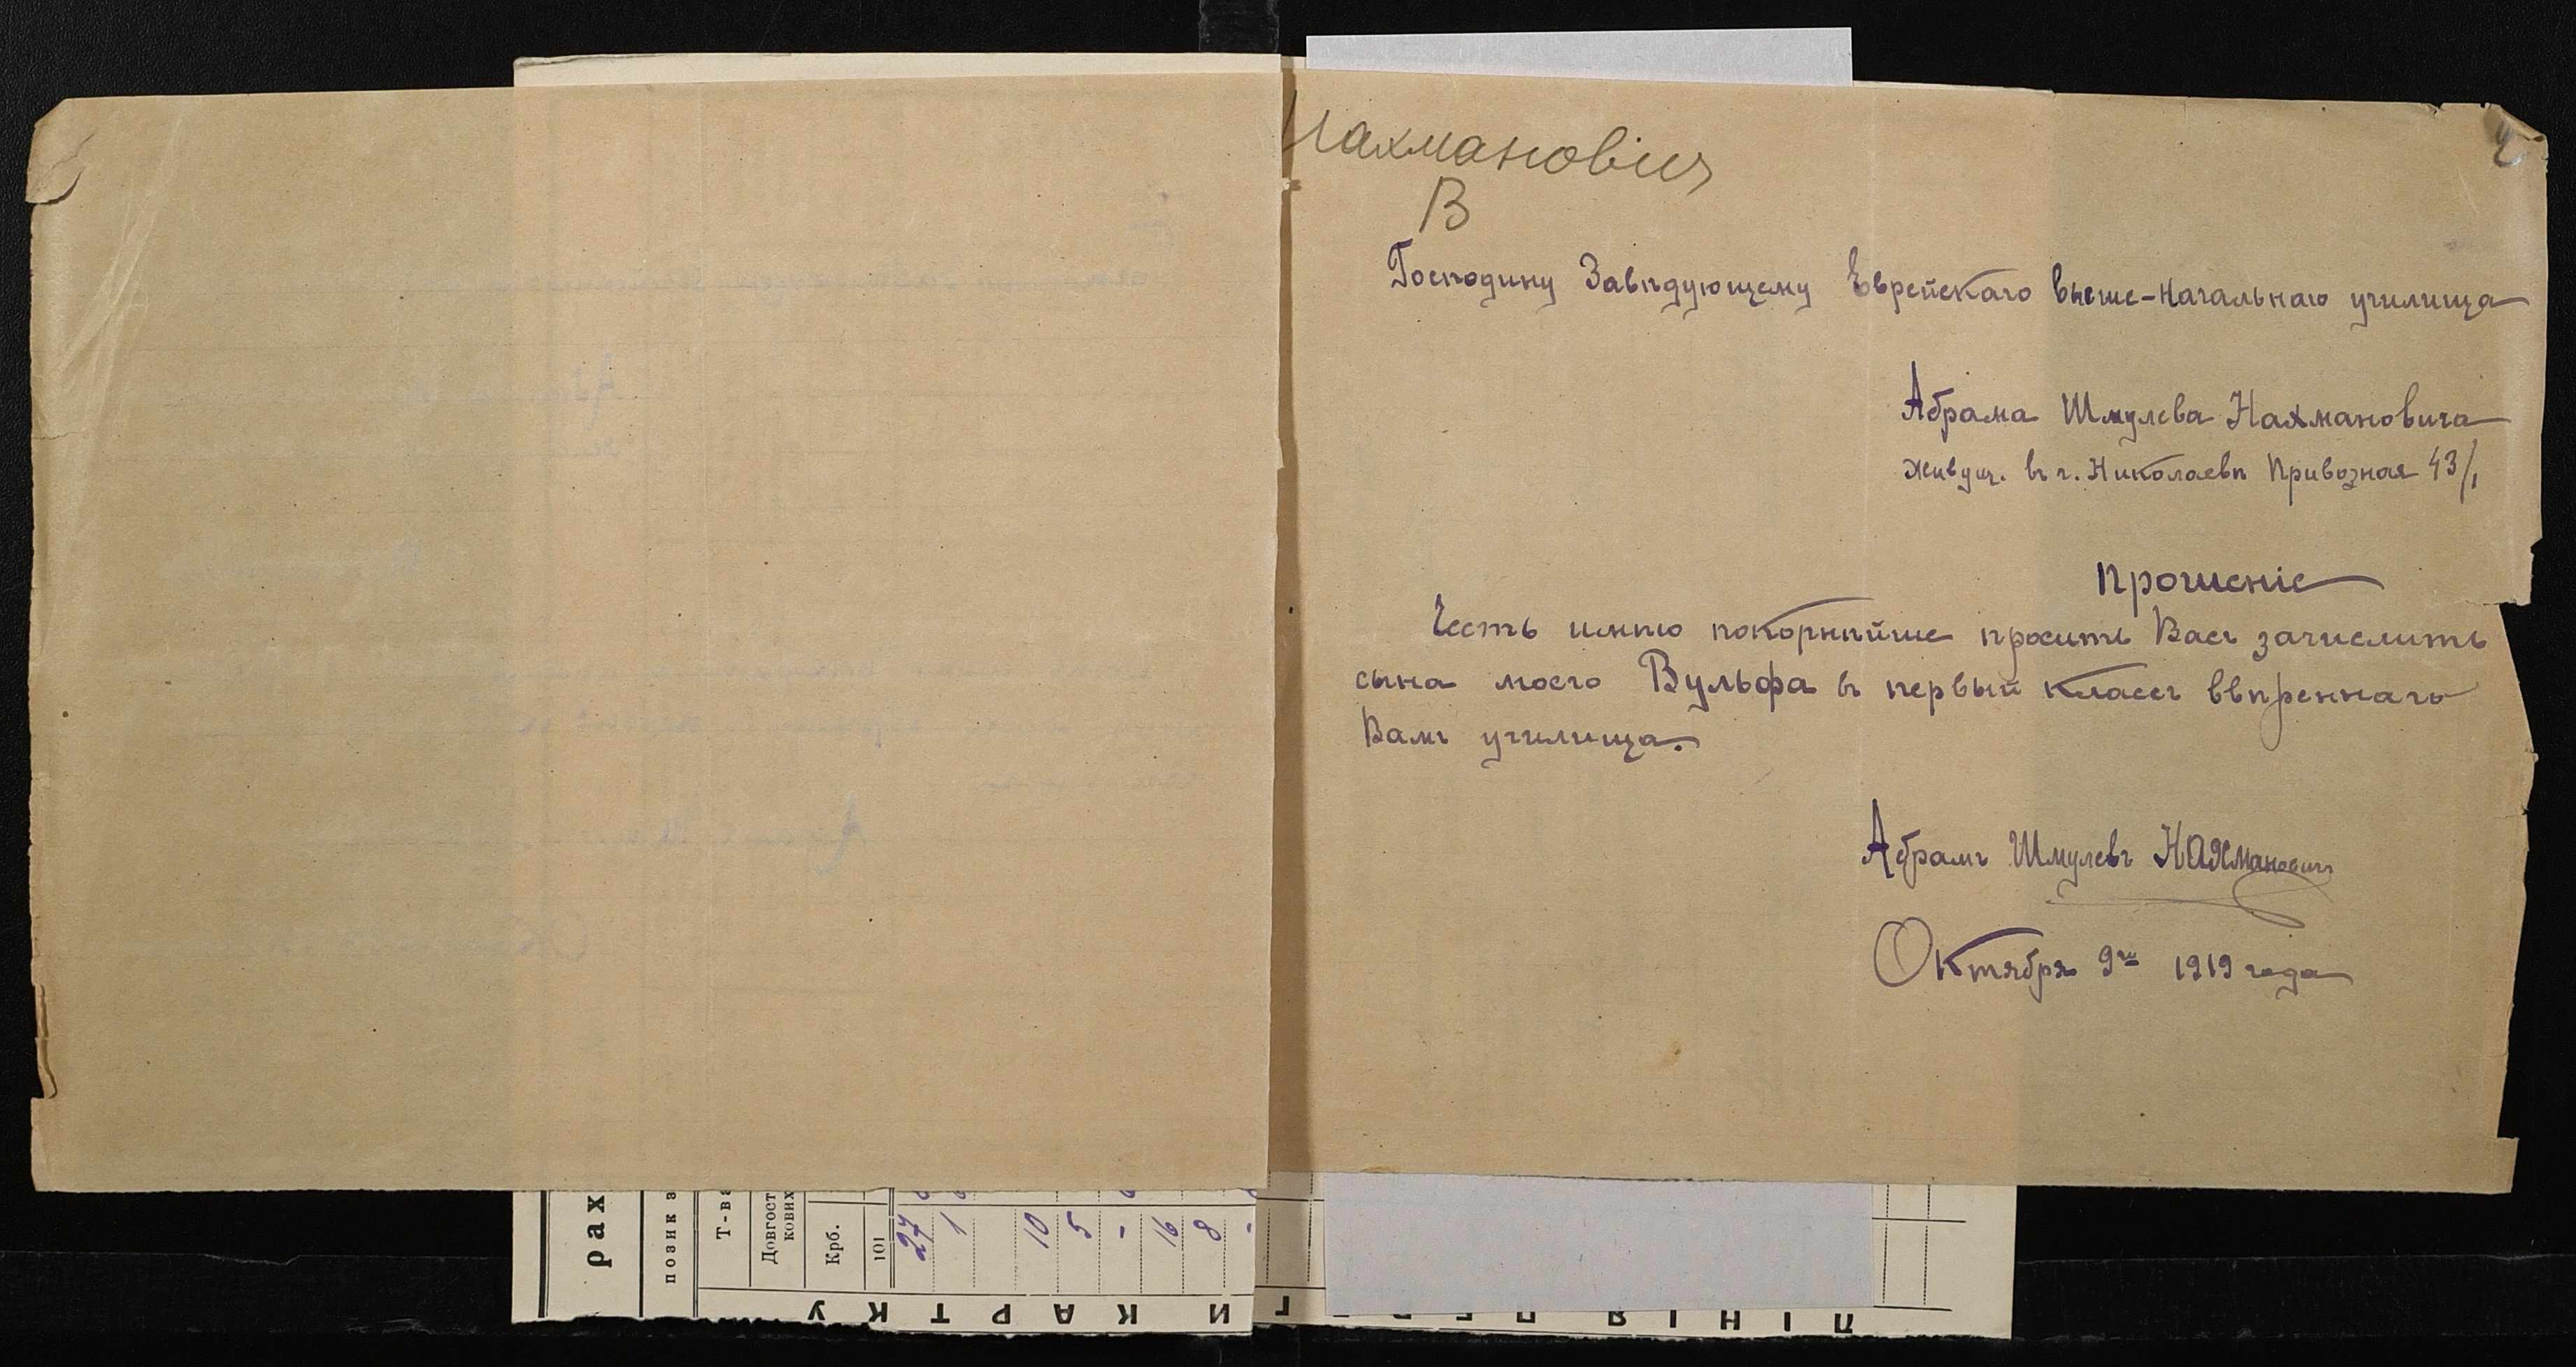 Нахмановіч
В
2
Господину Завѣдующему Еврейскаго высше-начальнаго училища
Абрама Шмулева Нахмановича
живущ. въ г. Николаевѣ Привозная 43/1
Прошеніе
Честь имѣю покорнѣйше просить Васъ зачислить
сына моего Вульфа въ первый классъ ввѣреннаго
Вамъ училища.
Абрамъ Шмулевъ Нахмановичъ
Октября 9го 1919 года
рах
позик
Т-ва
Довгост
кових
Крб.
101
27
1
10
5
-
16
8
-
КАРТКУ
ЛІНІЯ